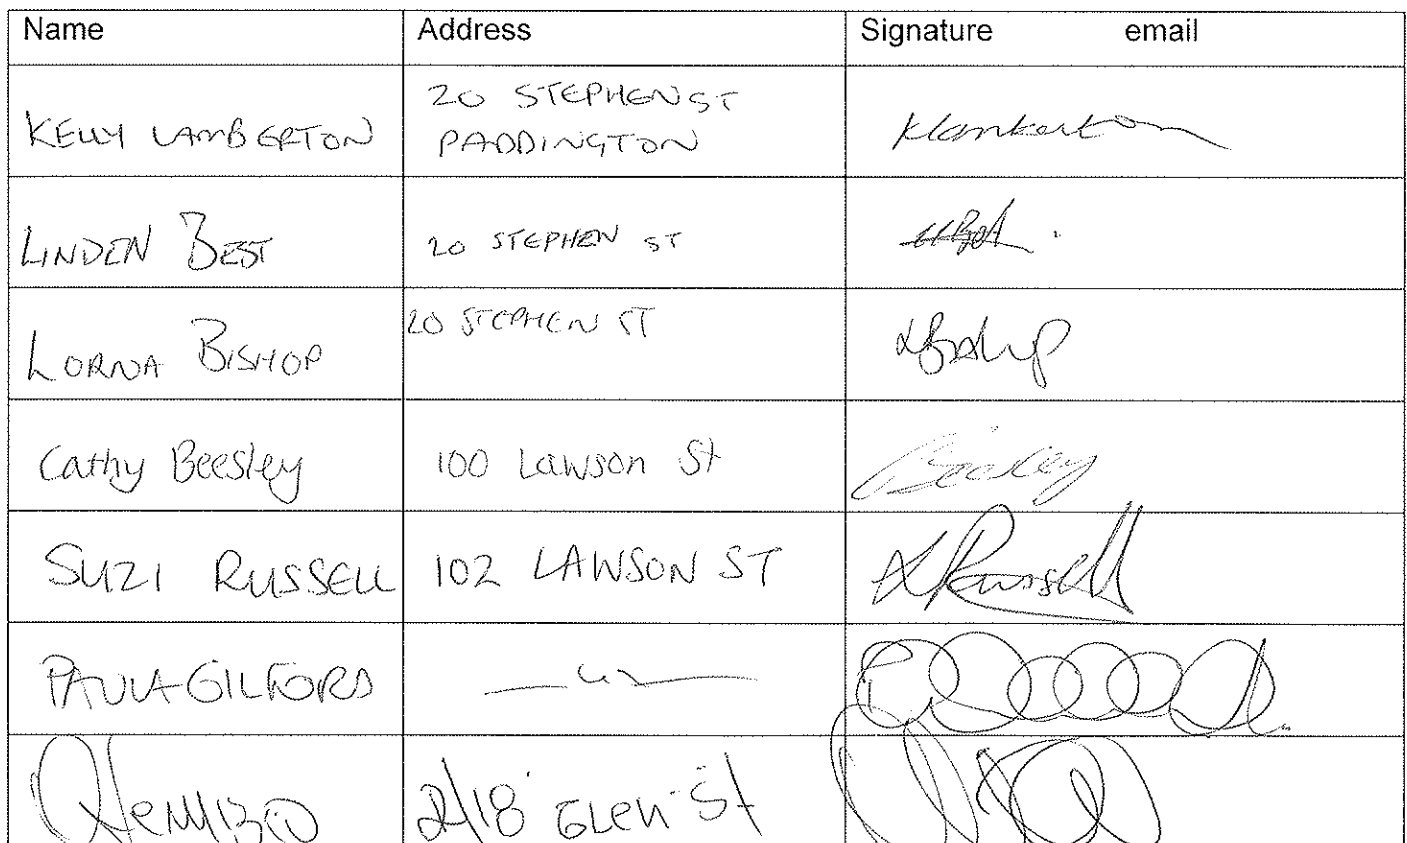 Name Address Signature email
KELLY LAMBERTON
20 STEPHEN ST
PADDINGTON
Klamberton
LINDEN BEST 20 STEPHEN ST
LORNA BISHOP 20 STEPHEN ST LBishop
Cathy Beesley 100 Lawson St Beesley
SUZI RUSSELL 102 LAWSON ST Russell
PAULA GILFORD — " —
2/18 GLEN St